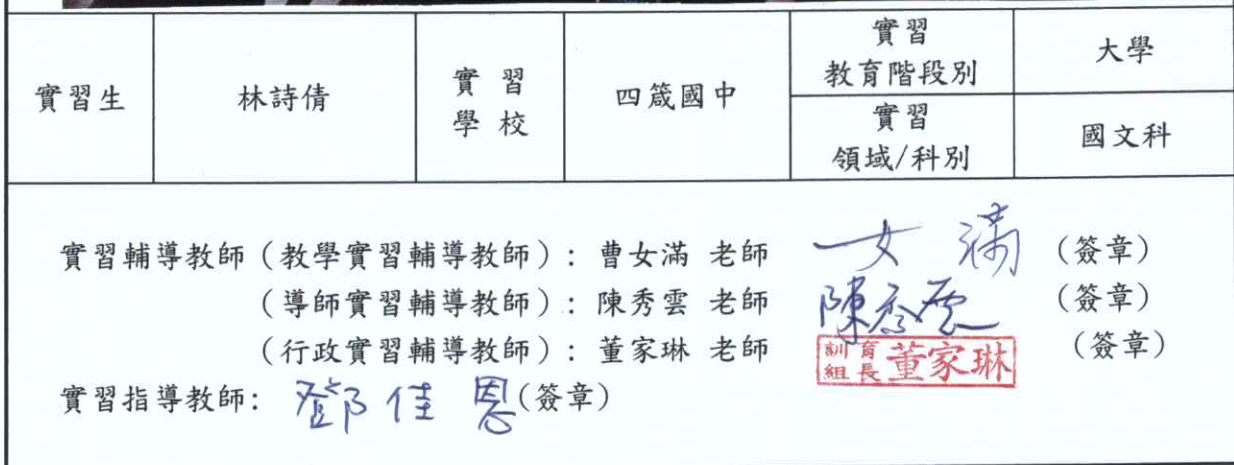 實習生
林詩倩
實習
學校
四箴國中
實習
教育階段別
大學
實習
領域/科別
國文科
實習輔導教師(教學實習輔導教師):曹女滿 老師 女滿 (簽章)
(導師實習輔導教師):陳秀雲 老師 陳秀雲 (簽章)
(行政實習輔導教師):董家琳 老師 訓育組長 董家琳 (簽章)
實習指導教師: 鄧佳恩(簽章)